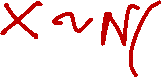 X ~ N(